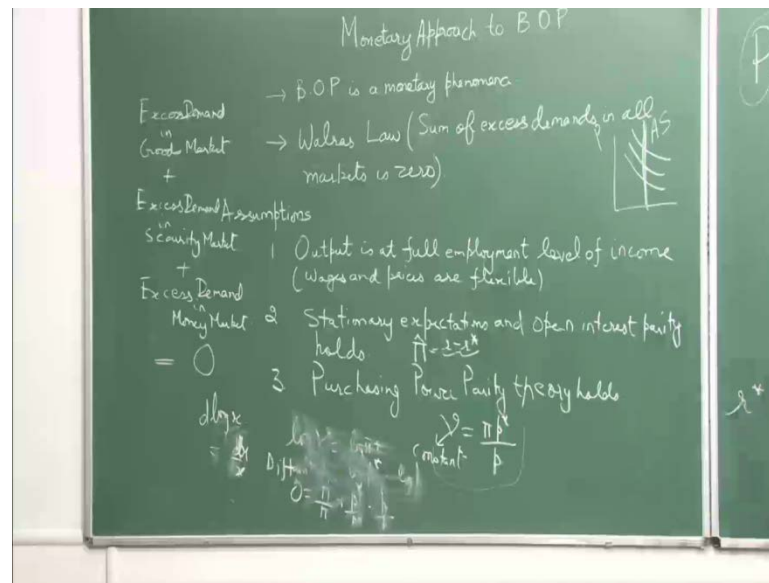 Monetary Approach to B O P
→ B.O.P is a monetary phenomena
→ Walras Law (Sum of excess demands in all
markets is zero)
AS
Excess Demand
in
Good Market
+
Excess Demand
in
Security Market
+
Excess Demand
in
Money Market
= 0
Assumptions
1 Output is at full employment level of income
(wages and prices are flexible)
2 Stationary expectations and open interest parity
holds. π̂ = r - r*
3 Purchasing Power Parity theory holds
ν = πp*/p
Constant
dlogx
= dx/x
P
r*